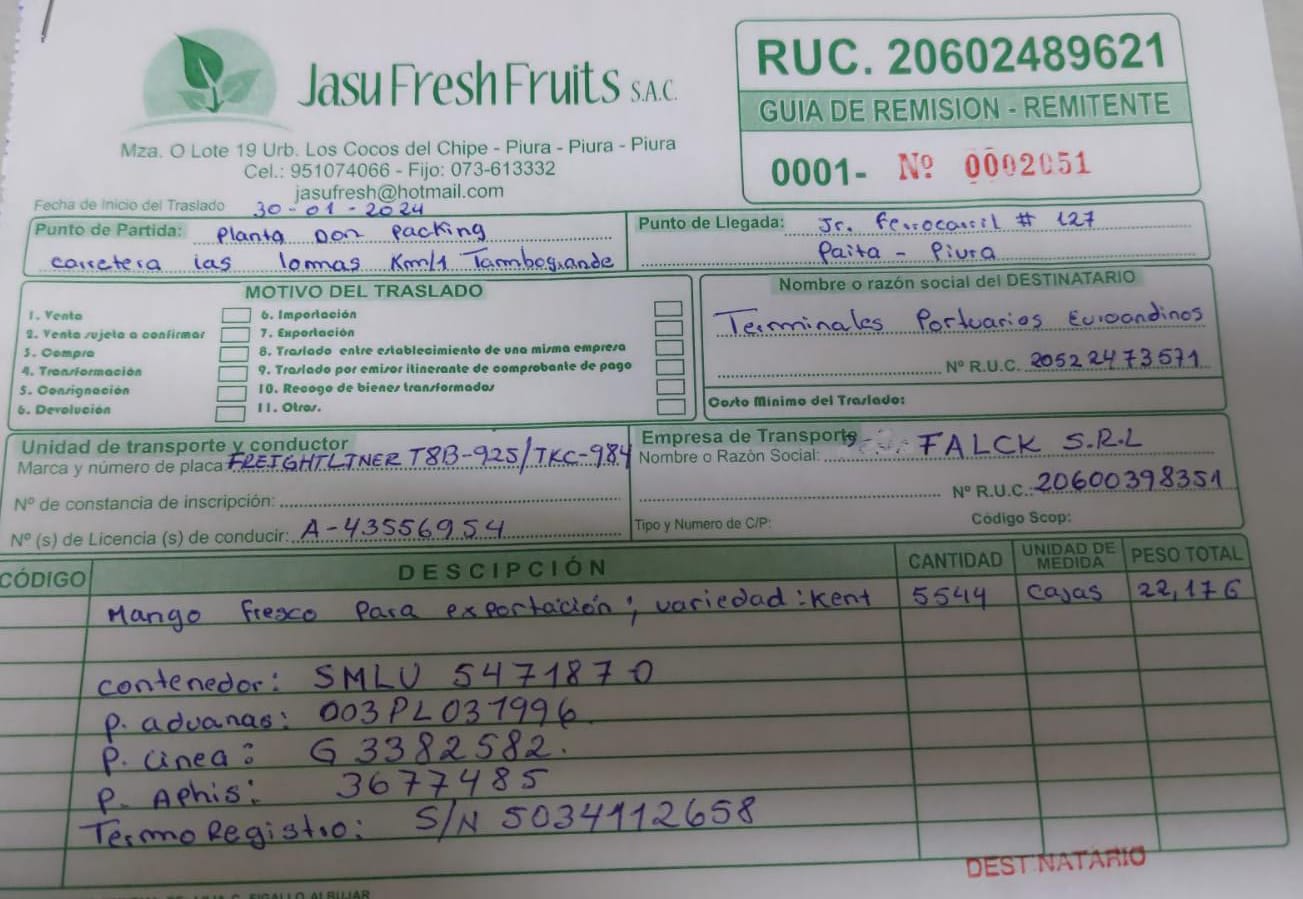 Jasu Fresh Fruits S.A.C.
Mza. O Lote 19 Urb. Los Cocos del Chipe - Piura - Piura - Piura
Cel.: 951074066 - Fijo: 073-613332
jasufresh@hotmail.com
RUC. 20602489621
GUIA DE REMISION - REMITENTE
0001- Nº 0002051
Fecha de Inicio del Traslado 30-01-2024
Punto de Partida: Planta Don Packing
carretera las lomas Km/1 Tambogrande
Punto de Llegada: Jr. Ferrocarril # 127
Paita - Piura
MOTIVO DEL TRASLADO
1. Venta
2. Venta sujeta a confirmar
3. Compra
4. Transformación
5. Consignación
6. Devolución
6. Importación
7. Exportación
8. Traslado entre establecimiento de una misma empresa
9. Traslado por emisor itinerante de comprobante de pago
10. Recogo de bienes transformados
11. Otros.
Nombre o razón social del DESTINATARIO
Terminales Portuarios Euroandinos
Nº R.U.C. 20522473571
Costo Mínimo del Traslado:
Unidad de transporte y conductor
Marca y número de placa FREIGHTLINER T8B-925/TKC-984
Nº de constancia de inscripción:
Nº (s) de Licencia (s) de conducir: A-43556954
Empresa de Transporte
Nombre o Razón Social: FALCK S.R.L
Nº R.U.C.: 20600398351
Tipo y Numero de C/P: Código Scop:
CÓDIGO DESCIPCIÓN CANTIDAD UNIDAD DE MEDIDA PESO TOTAL
Mango Fresco Para exportación; variedad: Kent 5544 cajas 22,176
contenedor: SMLU 5471870
P. aduanas: 003PL037996
P. Linea: G 3382582.
P. Aphis: 3677485
Termo Registro: S/N 5034112658
DESTINATARIO